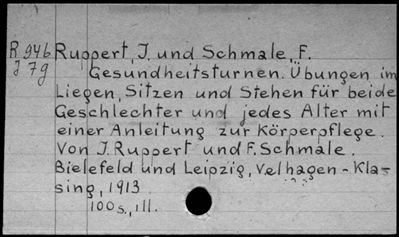 R 946 Ruppert, J. und Schmale, F.
J 7g Gesundheitsturnen. Übungen im
Liegen, Sitzen und Stehen für beide
Geschlechter und jedes Alter mit
einer Anleitung zur Körperpflege.
Von J. Ruppert und F. Schmale.
Bielefeld und Leipzig, Velhagen-Kla=
sing, 1913
100 s., ill.